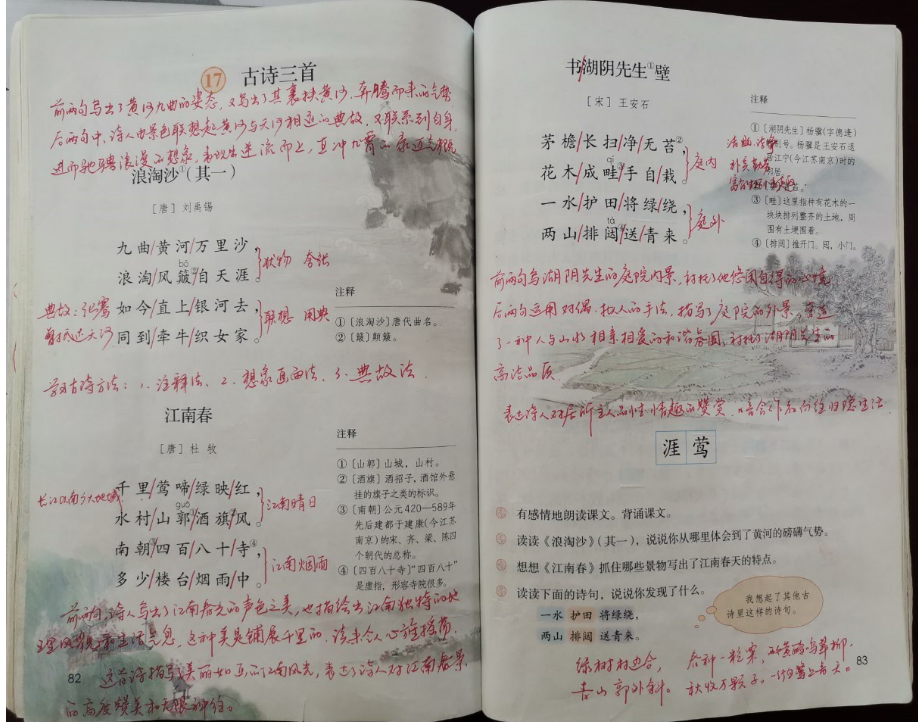 17 古诗三首
前两句写出了黄河九曲的姿态，又写出了其裹挟黄沙、奔腾而来的气势
后两句中，诗人由景色联想起黄河与天河相通的典故，又联系到自身
进而驰骋浪漫的想象，表现出逆流而上，直冲九霄的豪迈气概
浪淘沙①（其一）
［唐］刘禹锡
九曲/黄河/万里沙，
bǒ
浪淘/风簸②/自天涯。
状物 夸张
典故：张骞
如今/直上/银河去，
同到/牵牛/织女家。
联想 用典
注释
①［浪淘沙］唐代曲名。
②［簸］颠簸。
学古诗方法：1、注释法、2、想象画面法、3、典故法
江南春
［唐］杜牧
千里/莺啼/绿映/红，
guō
水村/山郭①/酒旗②/风。
江南晴日
南朝③/四百/八十/寺④，
多少/楼台/烟雨/中。
江南烟雨
注释
①［山郭］山城，山村。
②［酒旗］酒招子，酒馆外悬
挂的旗子之类的标识。
③［南朝］公元420—589年
先后建都于建康（今江苏
南京）的宋、齐、梁、陈四
个朝代的总称。
④［四百八十寺］“四百八十”
是虚指，形容寺院很多。
前两句，诗人写出了江南春光的声色之美，也描绘出江南独特的地
这种美是铺展千里的，读来令人心旌摇荡
这首诗描写美丽如画的江南风光，表达了诗人对江南春景
的高度赞美和无限神往。
82
书湖阴先生①壁
［宋］王安石
茅檐/长扫/净/无苔②，
qí
花木/成畦③/手自/栽。
庭内
一水/护田/将绿/绕，
tà
两山/排闼④/送/青来。
庭外
注释
①［湖阴先生］杨骥（字德逢）
号。杨骥是王安石退
江宁（今江苏南京）时的
邻居。
③［畦］这里指种有花木的一
块块排列整齐的土地，周
围有土埂围着。
④［排闼］推开门。闼，小门。
前两句写湖阴先生的庭院内景，衬托了他悠闲自得的心境
后两句运用对偶、拟人的手法，描写了庭院的外景，营造
了一种人与山水相亲相爱的和谐氛围，衬托了湖阴先生的
高洁品质
涯 莺
有感情地朗读课文。背诵课文。
读读《浪淘沙》（其一），说说你从哪里体会到了黄河的磅礴气势。
想想《江南春》抓住哪些景物写出了江南春天的特点。
读读下面的诗句，说说你发现了什么。
一水 护田 将绿绕，
两山 排闼 送青来。
我想起了其他古
诗里这样的诗句。
绿树村边合，
青山郭外斜。
春种一粒粟，
秋收万颗子。
两黄鹂鸣翠柳
一行白鹭上青天。
83